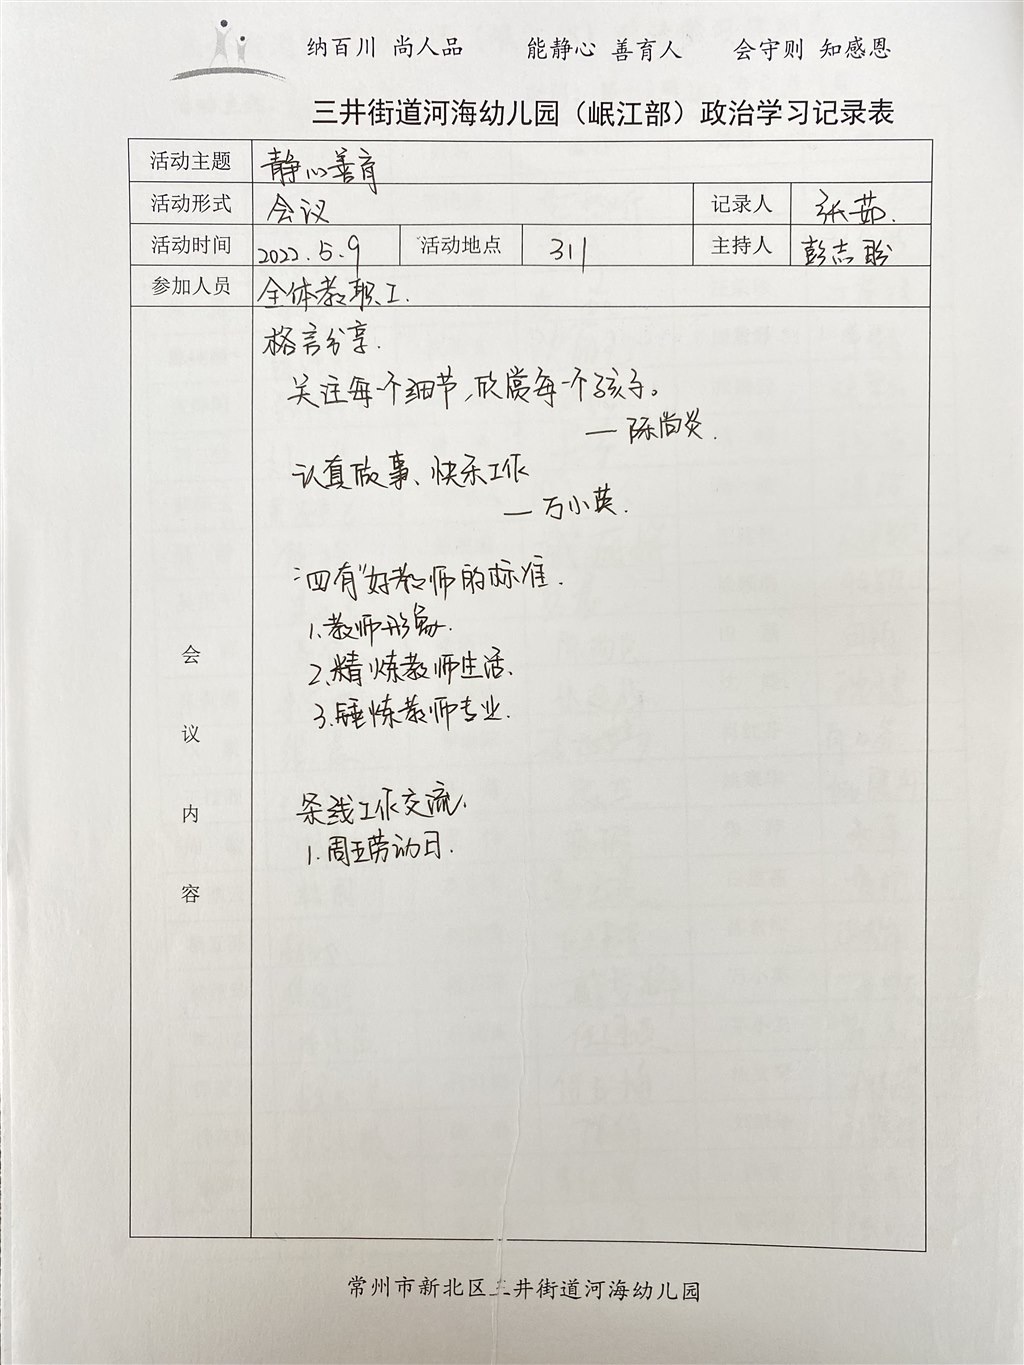 纳百川 尚人品 能静心 善育人 会守则 知感恩
三井街道河海幼儿园（岷江部）政治学习记录表
活动主题 静心善育
活动形式 会议 记录人 张茹.
活动时间 2022.5.9 活动地点 311 主持人 彭志盼
参加人员 全体教职工.
格言分享.
关注每个细节,欣赏每个孩子。
— 陈尚炎.
认真做事、快乐工作
— 万小英.
“四有”好教师的标准.
1.教师形象.
2.精炼教师生活.
3.锤炼教师专业.
条线工作交流.
1.周五劳动日.
会议内容
常州市新北区三井街道河海幼儿园